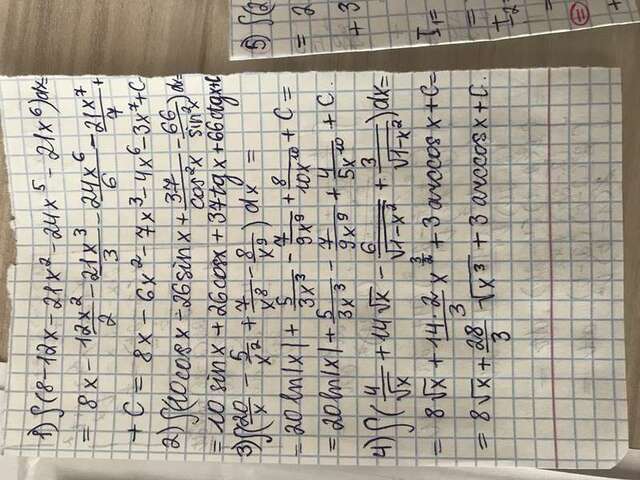 1) ∫(8-12x-21x²-24x⁵-21x⁶)dx=
= 8x - 12x²/2 - 21x³/3 - 24x⁶/6 - 21x⁷/7 +
+ C = 8x - 6x² - 7x³ - 4x⁶ - 3x⁷ + C
2) ∫(10cosx - 26sinx + 37/cos²x - 66/sin²x)dx=
= 10 sinx + 26cosx + 37tgx + 66ctgx + C
3) ∫(20/x - 5/x² + 7/x⁸ - 8/x⁹) dx =
= 20 ln|x| + 5/3x³ - 7/9x⁹ + 8/10x¹⁰ + C =
= 20 ln|x| + 5/3x³ - 7/9x⁹ + 4/5x¹⁰ + C.
4) ∫(4/√x + 14√x - 6/√1-x² + 3/√1-x²)dx=
= 8√x + 14·2/3 x^3/2 + 3 arccosx + C =
= 8√x + 28/3 √x³ + 3 arccosx + C.
5) ∫(2
= 2
+ 3
I₁=
=
I₂=
=
(=)
+